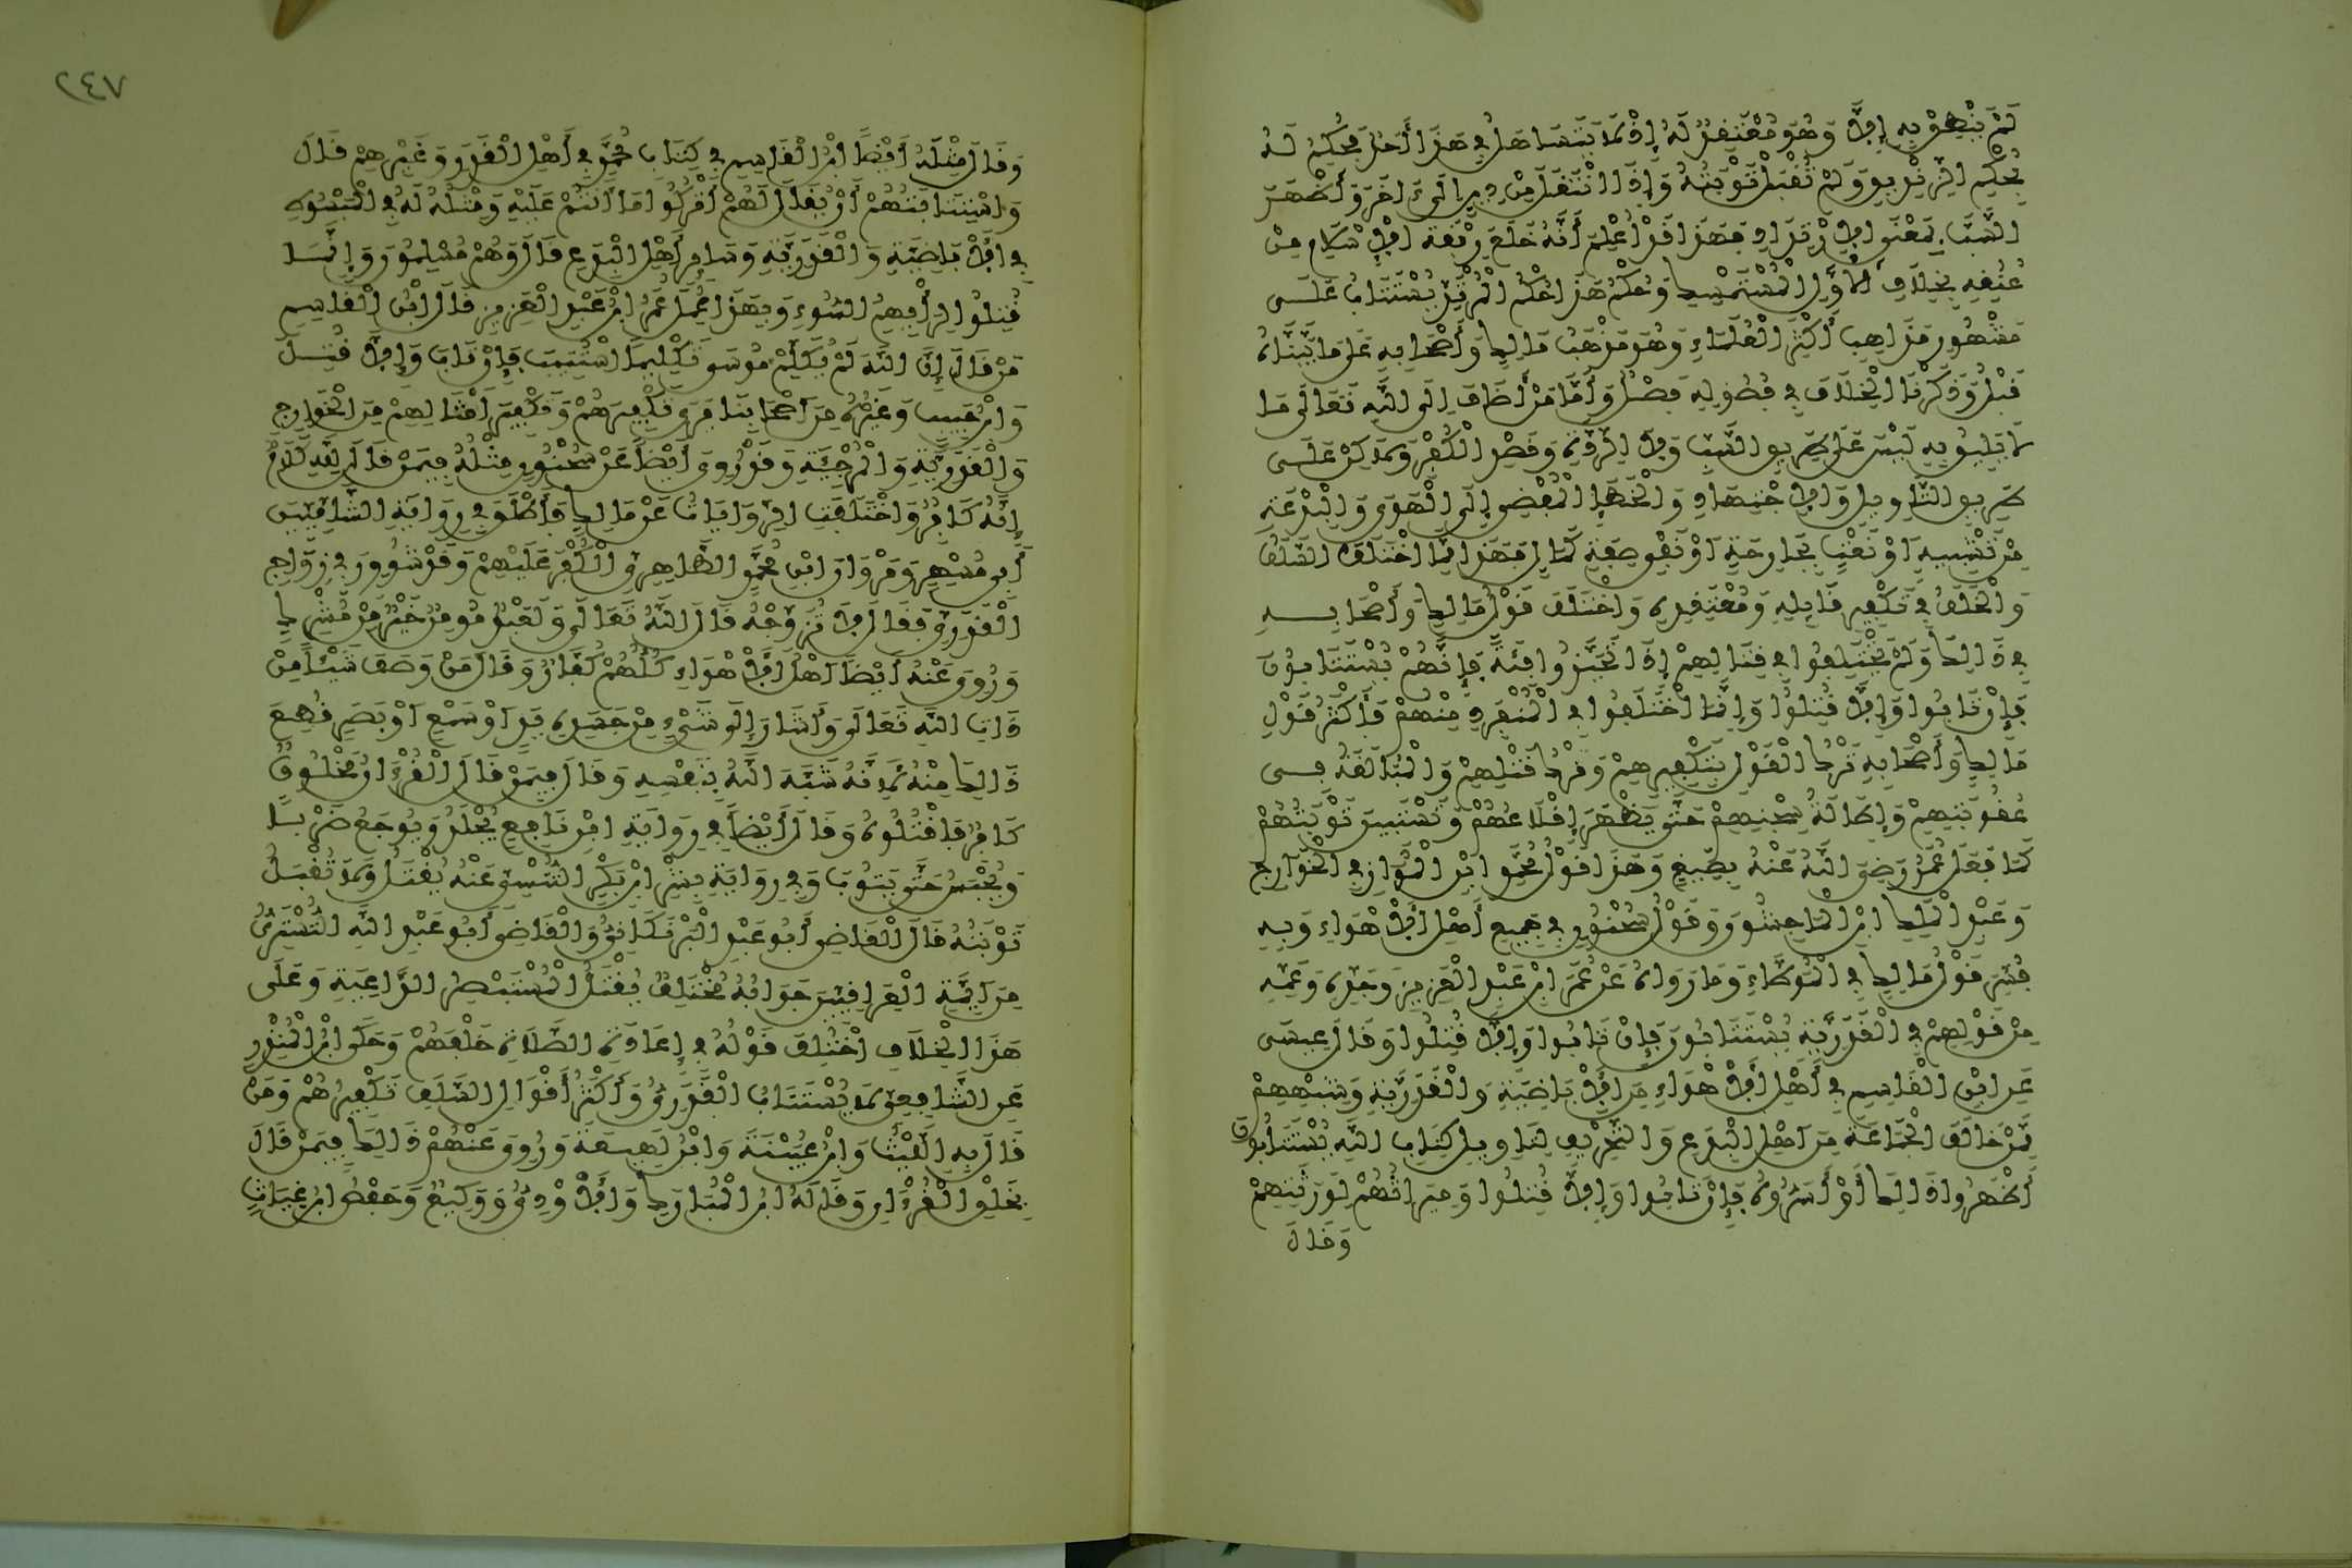 لَمْ يَنْطِقْ بِهِ إِلَّا وَهُوَ مُعْتَقِدٌ لَهُ إِذْ لَا يَتَسَاهَلُ فِي هَذَا أَحَدٌ فَحُكِمَ لَهُ
بِحُكْمِ الزِّنْدِيقِ وَلَمْ تُقْبَلْ تَوْبَتُهُ وَإِذَا انْتَقَلَ مِنْ دِينٍ إِلَى آخَرَ وَأَظْهَرَ
السَّبَّ بِمَعْنَى الِارْتِدَادِ فَهَذَا قَدْ أَعْلَمَ أَنَّهُ خَلَعَ رِبْقَةَ الْإِسْلَامِ مِنْ
عُنُقِهِ بِخِلَافِ الْأَوَّلِ الْمُسْتَمْسِكِ وَحُكْمُ هَذَا حُكْمُ الْمُرْتَدِّ يُسْتَتَابُ عَلَى
مَشْهُورِ مَذَاهِبِ أَكْثَرِ الْعُلَمَاءِ وَهُوَ مَذْهَبُ مَالِكٍ وَأَصْحَابِهِ عَلَى مَا بَيَّنَّاهُ
قَبْلُ وَذَكَرْنَا الْخِلَافَ فِي فُصُولِهِ فَصْلٌ وَأَمَّا مَنْ أَضَافَ إِلَى اللَّهِ تَعَالَى مَا
لَا يَلِيقُ بِهِ لَيْسَ عَلَى طَرِيقِ السَّبِّ وَلَا الرِّدَّةِ وَقَصْدِ الْكُفْرِ وَلَكِنْ عَلَى
طَرِيقِ التَّأْوِيلِ وَالِاجْتِهَادِ وَالْخَطَإِ الْمُفْضِي إِلَى الْهَوَى وَالْبِدْعَةِ
مِنْ تَشْبِيهٍ أَوْ نَعْتٍ بِجَارِحَةٍ أَوْ نَفْيِ صِفَةِ كَمَالٍ فَهَذَا مِمَّا اخْتَلَفَ السَّلَفُ
وَالْخَلَفُ فِي تَكْفِيرِ قَائِلِهِ وَمُعْتَقِدِهِ وَاخْتَلَفَ قَوْلُ مَالِكٍ وَأَصْحَابِهِ
فِي ذَلِكَ وَلَمْ يَخْتَلِفُوا فِي قِتَالِهِمْ إِذَا تَحَيَّزُوا فِئَةً فَإِنَّهُمْ يُسْتَتَابُونَ
فَإِنْ تَابُوا وَإِلَّا قُتِلُوا وَإِنَّمَا اخْتَلَفُوا فِي الْمُنْفَرِدِ مِنْهُمْ فَأَكْثَرُ قَوْلِ
مَالِكٍ وَأَصْحَابِهِ تَرْكُ الْقَوْلِ بِتَكْفِيرِهِمْ وَتَرْكُ قَتْلِهِمْ وَالْمُبَالَغَةُ فِي
عُقُوبَتِهِمْ وَإِطَالَةُ سِجْنِهِمْ حَتَّى يَظْهَرَ إِقْلَاعُهُمْ وَتَسْتَبِينَ تَوْبَتُهُمْ
كَمَا فَعَلَ عُمَرُ رَضِيَ اللَّهُ عَنْهُ بِصَبِيغٍ وَهَذَا قَوْلُ مُحَمَّدِ ابْنِ الْمَوَّازِ فِي الْخَوَارِجِ
وَعَبْدِ الْمَلِكِ ابْنِ الْمَاجِشُونِ وَقَوْلُ سُحْنُونٍ فِي جَمِيعِ أَهْلِ الْأَهْوَاءِ وَبِهِ
فُسِّرَ قَوْلُ مَالِكٍ فِي الْمُوَطَّاءِ وَمَا رَوَاهُ عَنْ عُمَرَ ابْنِ عَبْدِ الْعَزِيزِ وَجَدِّهِ وَعَمِّهِ
مِنْ قَوْلِهِمْ فِي الْقَدَرِيَّةِ يُسْتَتَابُونَ فَإِنْ تَابُوا وَإِلَّا قُتِلُوا وَقَالَ عِيسَى
عَنِ ابْنِ الْقَاسِمِ فِي أَهْلِ الْأَهْوَاءِ مِنَ الْإِبَاضِيَّةِ وَالْقَدَرِيَّةِ وَشِبْهِهِمْ
مِمَّنْ خَالَفَ الْجَمَاعَةَ مِنْ أَهْلِ الْبِدَعِ وَالتَّحْرِيفِ لِتَأْوِيلِ كِتَابِ اللَّهِ يُسْتَتَابُونَ
أَظْهَرُوا ذَلِكَ أَوْ أَسَرُّوهُ فَإِنْ تَابُوا وَإِلَّا قُتِلُوا وَمِيرَاثُهُمْ لِوَرَثَتِهِمْ
وَقَالَ
٢٤٧
وَقَالَ مِثْلَهُ أَيْضًا ابْنُ الْقَاسِمِ فِي كِتَابِ مُحَمَّدٍ فِي أَهْلِ الْقَدَرِ وَغَيْرِهِمْ قَالَ
وَاسْتِتَابَتُهُمْ أَنْ يُقَالَ لَهُمْ اتْرُكُوا مَا أَنْتُمْ عَلَيْهِ وَمِثْلُهُ لَهُ فِي الْمَبْسُوطِ
فِي الْإِبَاضِيَّةِ وَالْقَدَرِيَّةِ وَسَائِرِ أَهْلِ الْبِدَعِ قَالَ وَهُمْ مُسْلِمُونَ وَإِنَّمَا
قُتِلُوا لِرَأْيِهِمُ السُّوءِ وَبِهَذَا عَمِلَ عُمَرُ ابْنُ عَبْدِ الْعَزِيزِ قَالَ ابْنُ الْقَاسِمِ
مَنْ قَالَ إِنَّ اللَّهَ لَمْ يُكَلِّمْ مُوسَى تَكْلِيمًا اسْتُتِيبَ فَإِنْ تَابَ وَإِلَّا قُتِلَ
وَابْنُ حَبِيبٍ وَغَيْرُهُ مِنْ أَصْحَابِنَا يَرَى تَكْفِيرَهُمْ وَتَكْفِيرَ أَمْثَالِهِمْ مِنَ الْخَوَارِجِ
وَالْقَدَرِيَّةِ وَالْمُرْجِئَةِ وَقَدْ رُوِيَ أَيْضًا عَنْ سُحْنُونٍ مِثْلُهُ فِيمَنْ قَالَ لَيْسَ لِلَّهِ كَلَامٌ
إِنَّهُ كَافِرٌ وَاخْتَلَفَتِ الرِّوَايَاتُ عَنْ مَالِكٍ فَأَطْلَقَ فِي رِوَايَةِ الشَّامِيِّينَ
أَبِي مُسْهِرٍ وَمَرْوَانَ ابْنِ مُحَمَّدٍ الطَّاهِرِيِّ الْكُفْرَ عَلَيْهِمْ وَقَدْ شُووِرَ فِي زَوَاجِ
الْقَدَرِيِّ فَقَالَ لَا تُزَوِّجْهُ قَالَ اللَّهُ تَعَالَى وَلَعَبْدٌ مُومِنٌ خَيْرٌ مِنْ مُشْرِكٍ
وَرُوِيَ عَنْهُ أَيْضًا أَهْلُ الْأَهْوَاءِ كُلُّهُمْ كُفَّارٌ وَقَالَ مَنْ وَصَفَ شَيْئًا مِنْ
ذَاتِ اللَّهِ تَعَالَى وَأَشَارَ إِلَى شَيْءٍ مِنْ جَسَدِهِ يَدٍ أَوْ سَمْعٍ أَوْ بَصَرٍ قُطِعَ
ذَلِكَ مِنْهُ لِأَنَّهُ شَبَّهَ اللَّهَ بِنَفْسِهِ وَقَالَ فِيمَنْ قَالَ الْقُرْءَانُ مَخْلُوقٌ
كَافِرٌ فَاقْتُلُوهُ وَقَالَ أَيْضًا فِي رِوَايَةِ ابْنِ نَافِعٍ يُجْلَدُ وَيُوجَعُ ضَرْبًا
وَيُحْبَسُ حَتَّى يَتُوبَ وَفِي رِوَايَةِ بِشْرِ ابْنِ بَكْرٍ التِّنِّيسِيِّ عَنْهُ يُقْتَلُ وَلَا تُقْبَلُ
تَوْبَتُهُ قَالَ الْقَاضِي أَبُو عَبْدِ الْبَرْنَكَانِيُّ وَالْقَاضِي أَبُو عَبْدِ اللَّهِ التُّسْتَرِيُّ
مِنْ أَيِمَّةِ الْعِرَاقِيِّينَ جَوَابُهُ مُخْتَلِفٌ يُقْتَلُ الْمُسْتَبْصِرُ الدَّاعِيَةُ وَعَلَى
هَذَا الْخِلَافِ اخْتَلَفَ قَوْلُهُ فِي إِعَادَةِ الصَّلَاةِ خَلْفَهُمْ وَحَكَى ابْنُ الْمُنْذِرِ
عَنِ الشَّافِعِيِّ لَا يُسْتَتَابُ الْقَدَرِيُّ وَأَكْثَرُ أَقْوَالِ السَّلَفِ تَكْفِيرُهُمْ وَمِمَّنْ
قَالَ بِهِ اللَّيْثُ وَابْنُ عُيَيْنَةَ وَابْنُ لَهِيعَةَ وَرُوِيَ عَنْهُمْ ذَلِكَ فِيمَنْ قَالَ
بِخَلْقِ الْقُرْءَانِ وَقَالَهُ ابْنُ الْمُبَارَكِ وَالْأَوْدِيُّ وَوَكِيعٌ وَحَفْصُ ابْنُ غِيَاثٍ